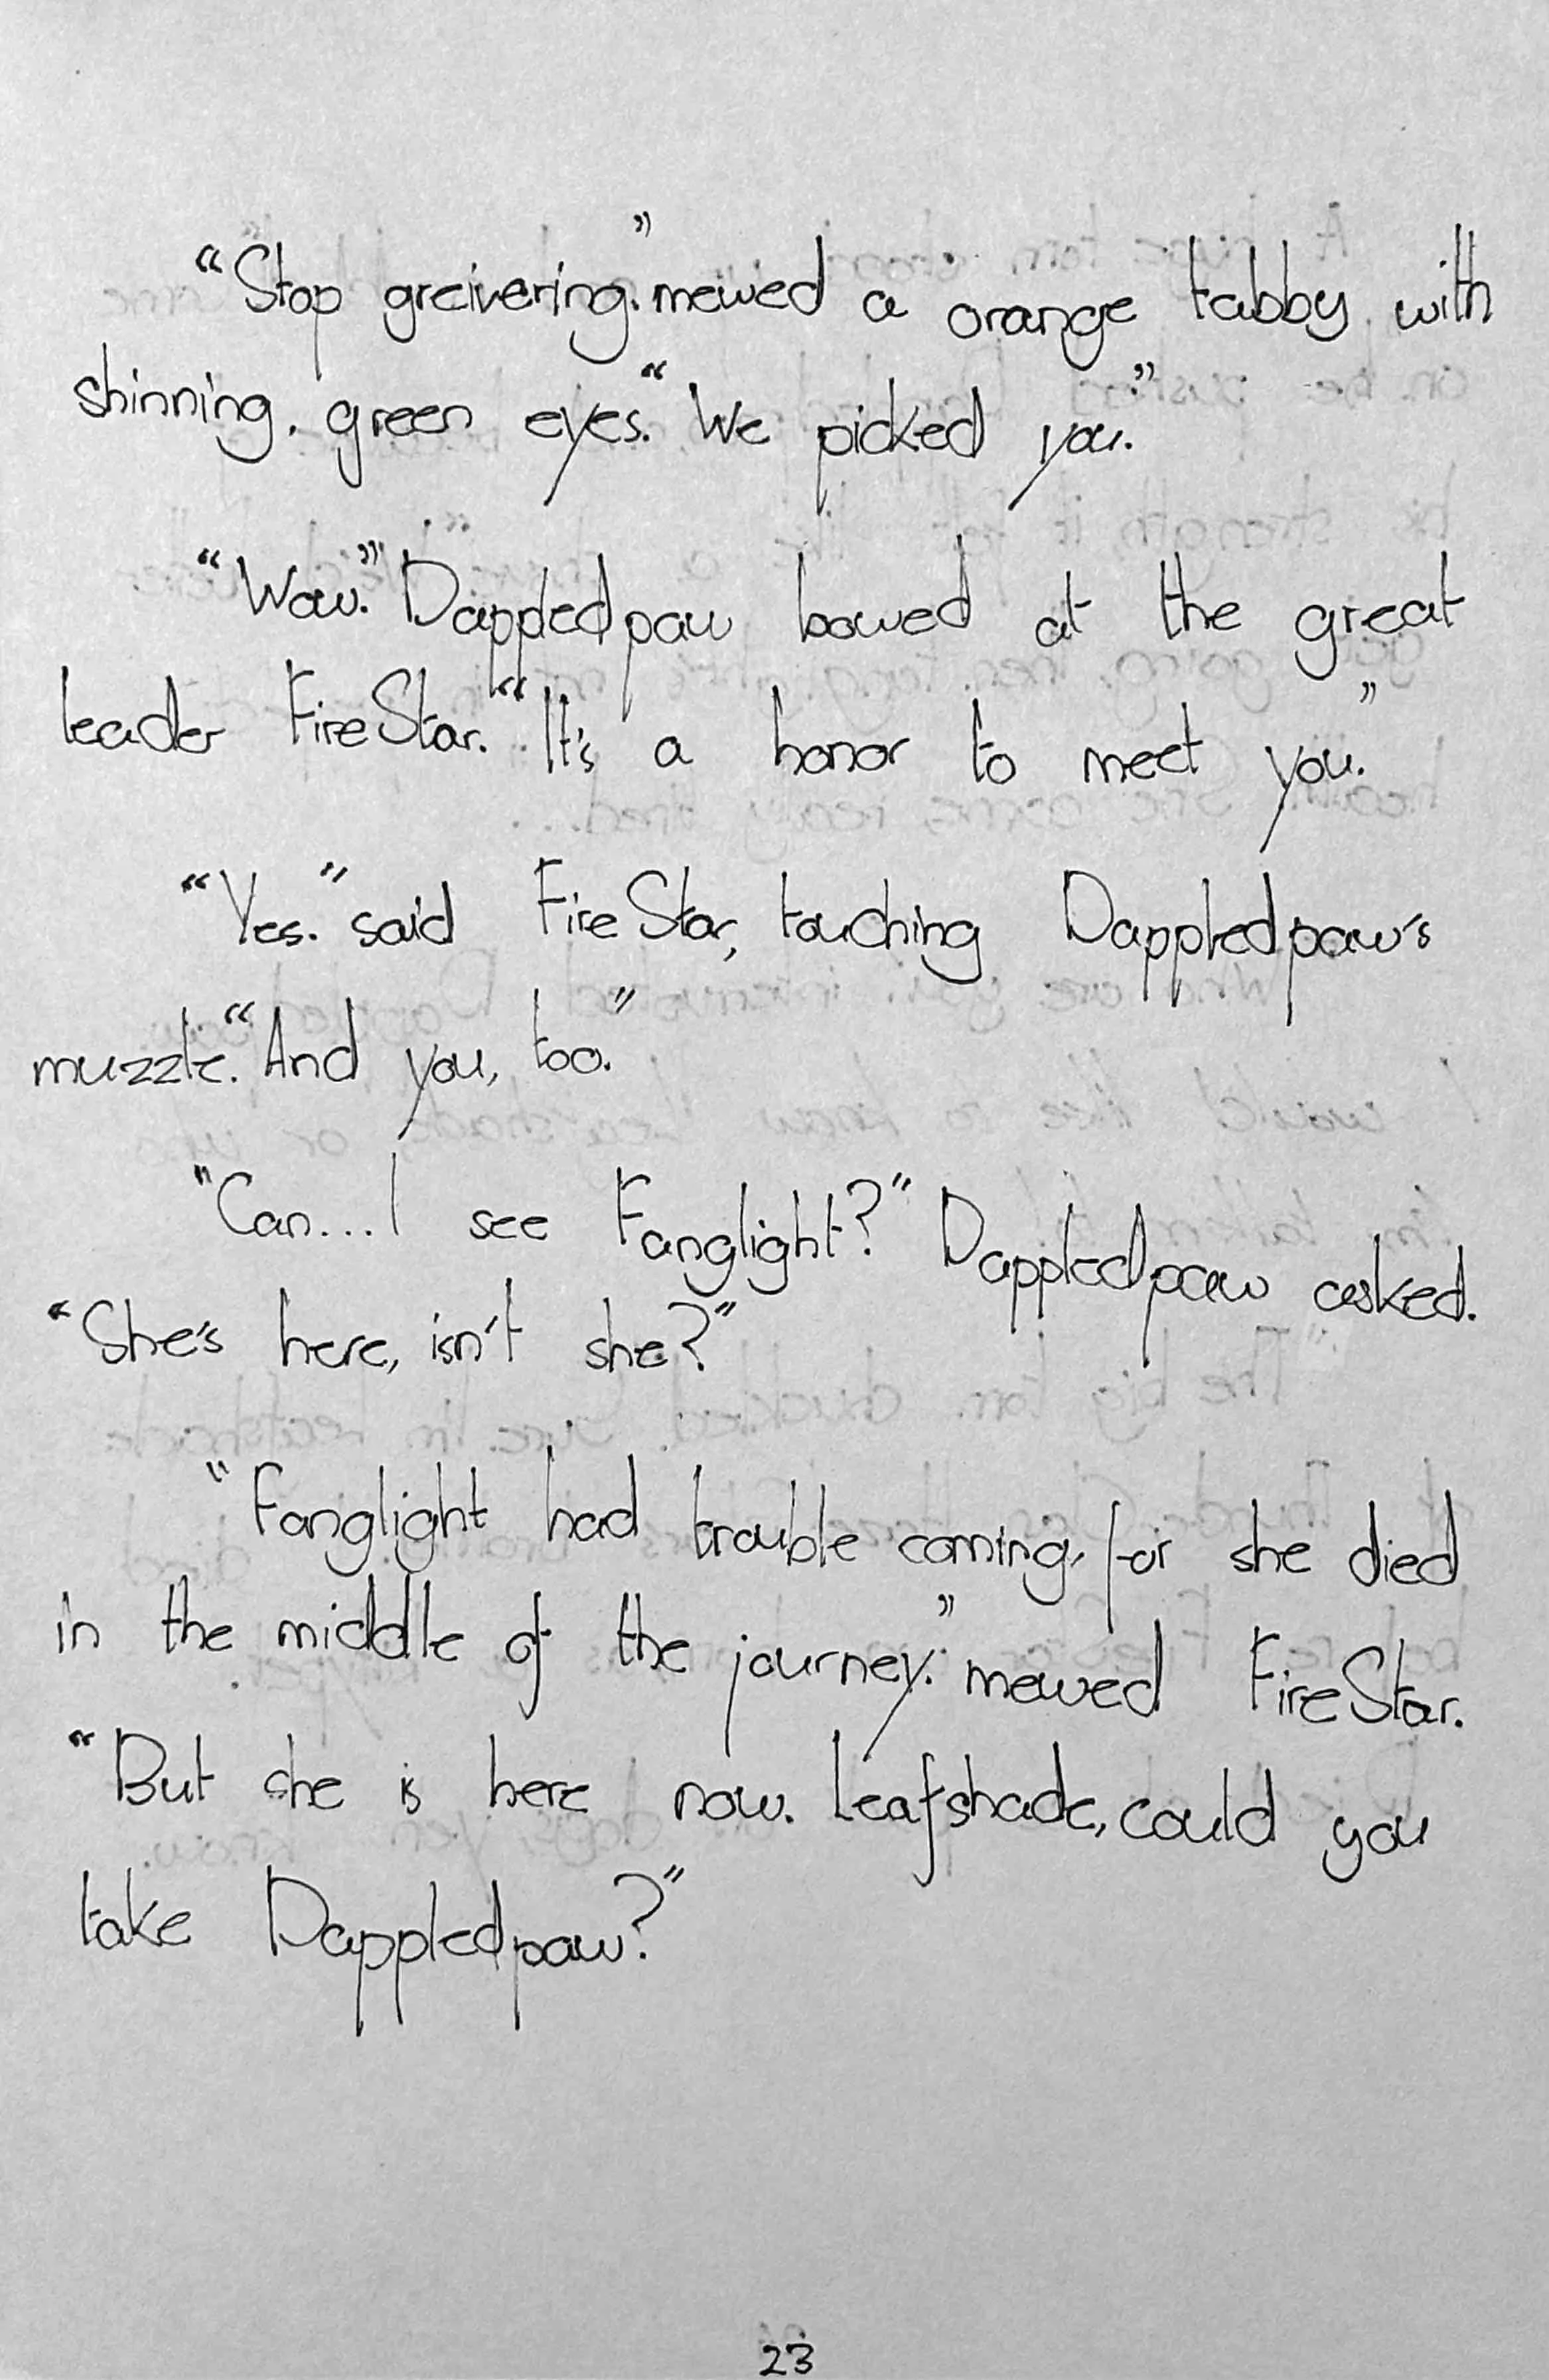 “Stop greivering.” mewed a orange tabby with
shinning, green eyes. “We picked you.”
“Wow.” Dappledpaw bowed at the great
leader FireStar. “It's a honor to meet you.”
“Yes.” said FireStar, touching Dappledpaw's
muzzle. “And you, too.”
"Can...I see Fanglight?" Dappledpaw asked.
“She's here, isn't she?”
"Fanglight had trouble coming, for she died
in the middle of the journey.” mewed FireStar.
“But she is here now. Leafshade, could you
take Dappledpaw?”
23